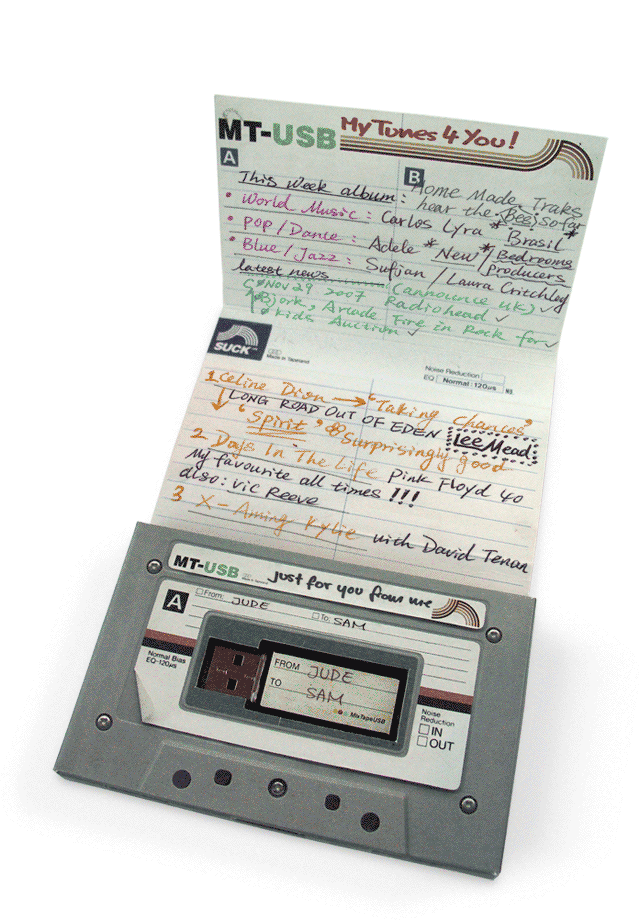 MT-USB My Tunes 4 You!
A
This Week album:
• World Music: Carlos Lyra * Brasil *
• Pop/Dance: Adele * New
• Blue/Jazz: Sufjan / Laura Critchley
B
Home Made Traks
hear the Bee sofar
Bedrooms
Producers
latest news
Nov 29 2007 (announce UK) ✓
Radiohead ✓
Bjork, Arcade Fire in Rock for ✓
Kids Auction ✓
SUCK
Made in Tapeland
Noise Reduction
EQ Normal: 120µs
1 Celine Dion → 'Taking Chances'
LONG ROAD OUT OF EDEN Lee Mead
'Spirit' Surprisingly good
2 Days In The Life Pink Floyd 40
My favourite all times !!!
also: Vic Reeve
3 X-Aming Kylie with David Tenan
MT-USB just for you from me
A
From: JUDE To: SAM
Normal Bias
EQ-120µs
FROM JUDE
TO SAM
MixTapeUSB
Noise
Reduction
IN
OUT